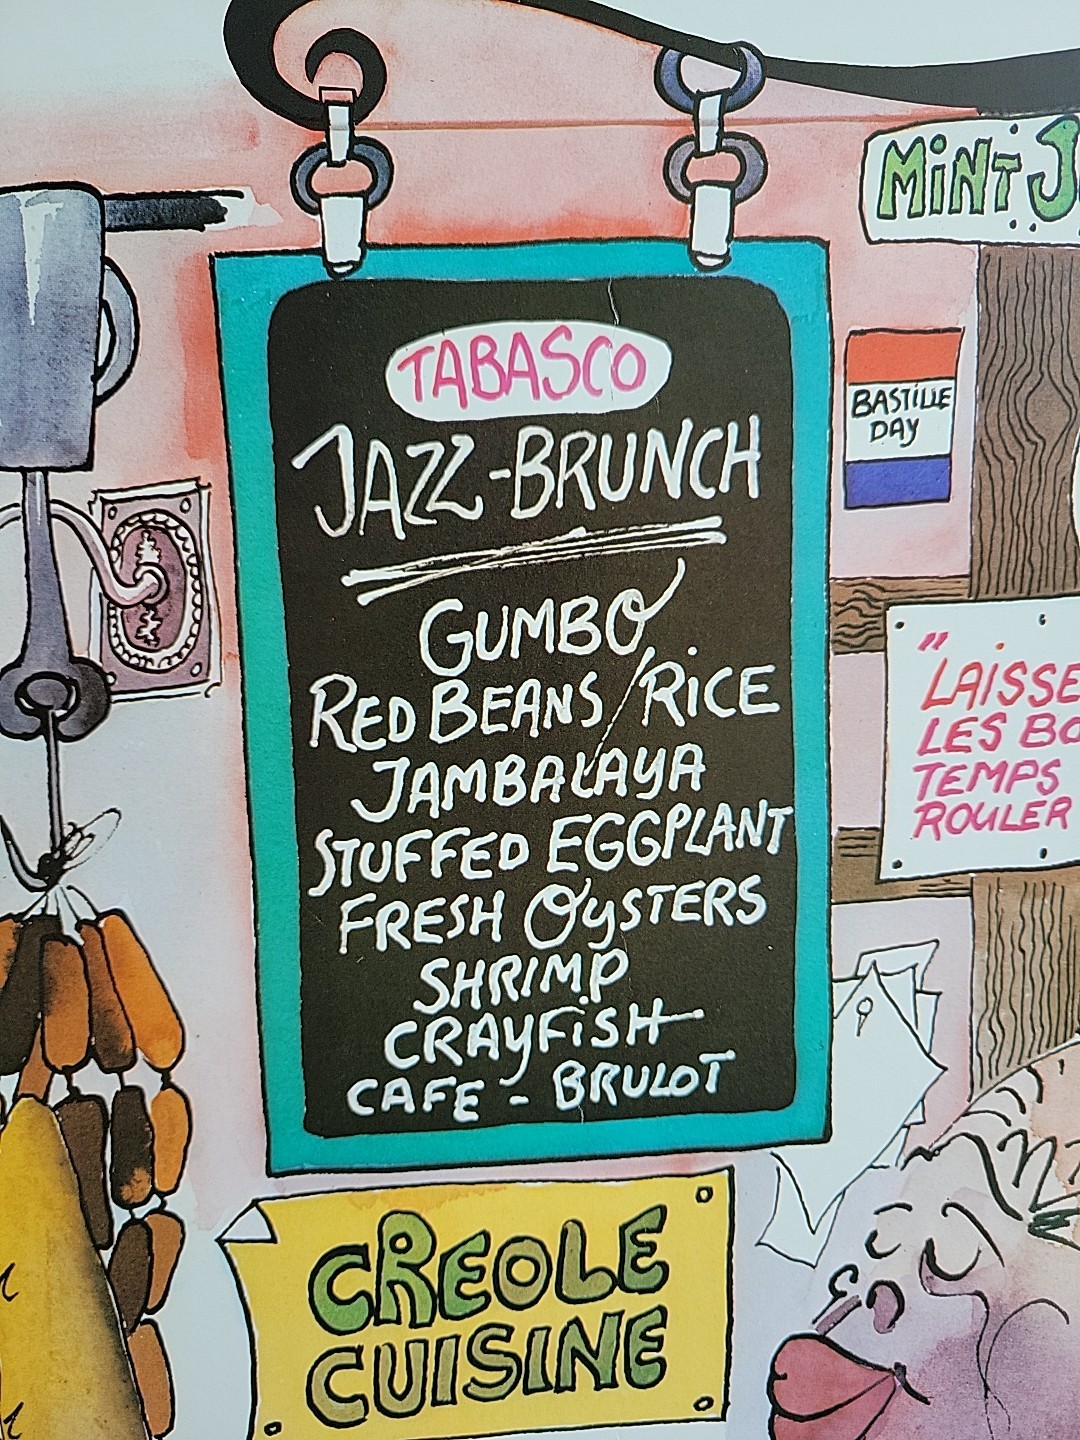 MINT J
TABASCO
JAZZ-BRUNCH
GUMBO
RED BEANS/RICE
JAMBALAYA
STUFFED EGGPLANT
FRESH OYSTERS
SHRIMP
CRAYFISH
CAFE - BRULOT
BASTILLE
DAY
"LAISSE
LES BO
TEMPS
ROULER
CREOLE
CUISINE